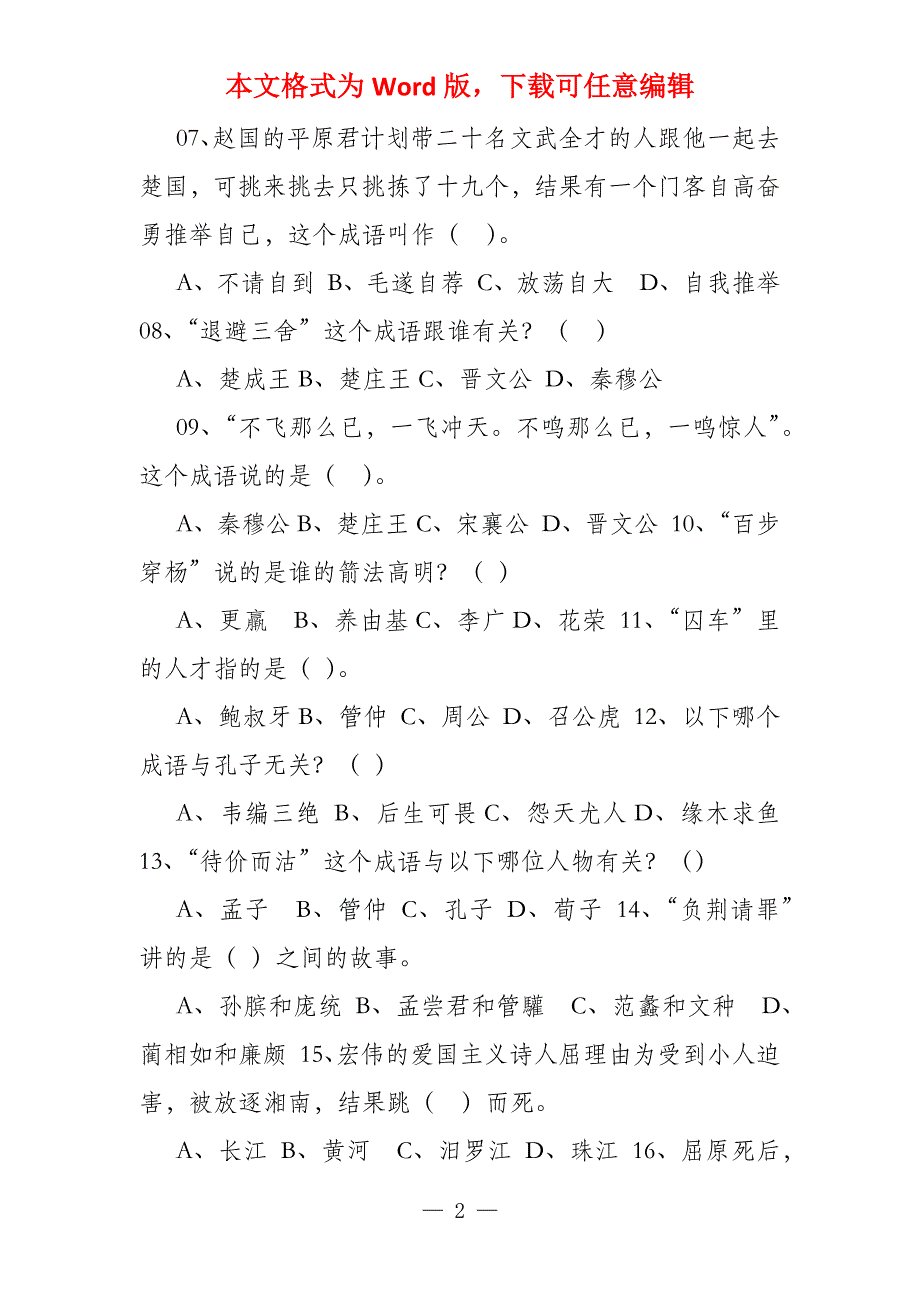 本文格式为 Word 版，下载可任意编辑
07、赵国的平原君计划带二十名文武全才的人跟他一起去
楚国，可挑来挑去只挑拣了十九个，结果有一个门客自高奋
勇推举自己，这个成语叫作（ ）。
A、不请自到 B、毛遂自荐 C、放荡自大 D、自我推举
08、“退避三舍”这个成语跟谁有关？（ ）
A、楚成王 B、楚庄王 C、晋文公 D、秦穆公
09、“不飞那么已，一飞冲天。不鸣那么已，一鸣惊人”。
这个成语说的是（ ）。
A、秦穆公 B、楚庄王 C、宋襄公 D、晋文公 10、“百步
穿杨”说的是谁的箭法高明？（ ）
A、更羸 B、养由基 C、李广 D、花荣 11、“囚车”里
的人才指的是（ ）。
A、鲍叔牙 B、管仲 C、周公 D、召公虎 12、以下哪个
成语与孔子无关？（ ）
A、韦编三绝 B、后生可畏 C、怨天尤人 D、缘木求鱼
13、“待价而沽”这个成语与以下哪位人物有关？（）
A、孟子 B、管仲 C、孔子 D、荀子 14、“负荆请罪”
讲的是（ ）之间的故事。
A、孙膑和庞统 B、孟尝君和管驩 C、范蠡和文种 D、
蔺相如和廉颇 15、宏伟的爱国主义诗人屈理由为受到小人迫
害，被放逐湘南，结果跳（ ）而死。
A、长江 B、黄河 C、汨罗江 D、珠江 16、屈原死后，
— 2 —